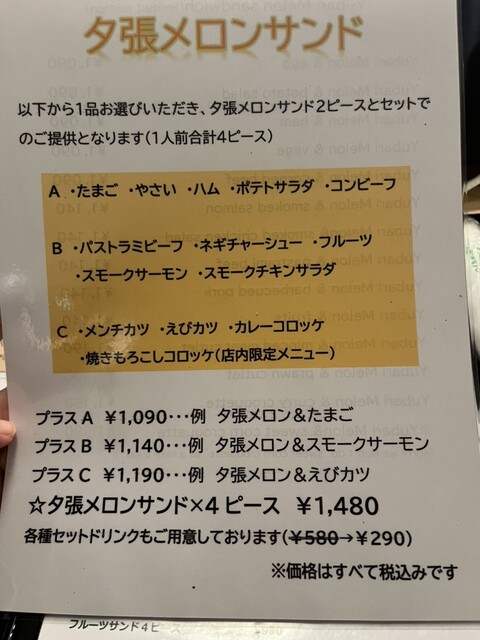 夕張メロンサンド
以下から1品お選びいただき、夕張メロンサンド2ピースとセットで
のご提供となります(1人前合計4ピース)
A ・たまご ・やさい ・ハム ・ポテトサラダ ・コンビーフ
B ・パストラミビーフ ・ネギチャーシュー ・フルーツ
・スモークサーモン ・スモークチキンサラダ
C ・メンチカツ ・えびカツ ・カレーコロッケ
・焼きもろこしコロッケ(店内限定メニュー)
プラスA ¥1,090・・・例 夕張メロン&たまご
プラスB ¥1,140・・・例 夕張メロン&スモークサーモン
プラスC ¥1,190・・・例 夕張メロン&えびカツ
☆夕張メロンサンド×4ピース ¥1,480
各種セットドリンクもご用意しております(¥580→¥290)
※価格はすべて税込みです
フルーツサンド4ピース